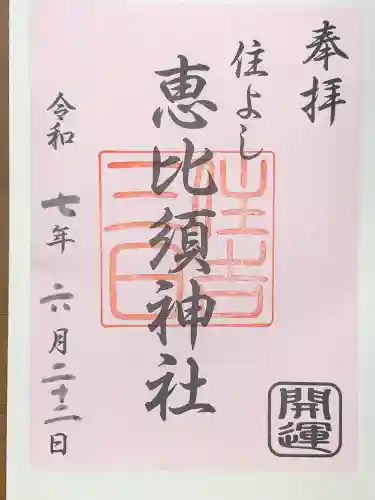 奉拝
住よし
恵比須神社
令和七年六月二十二日
開運